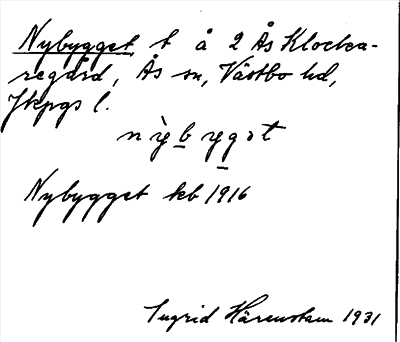 Nybygget t å 2 Ås Klocka-
regård, Ås sn, Västbo hd,
Jkpgs l.
nỳb ygət
Nybygget kb 1916
Ingrid Härenstam 1931